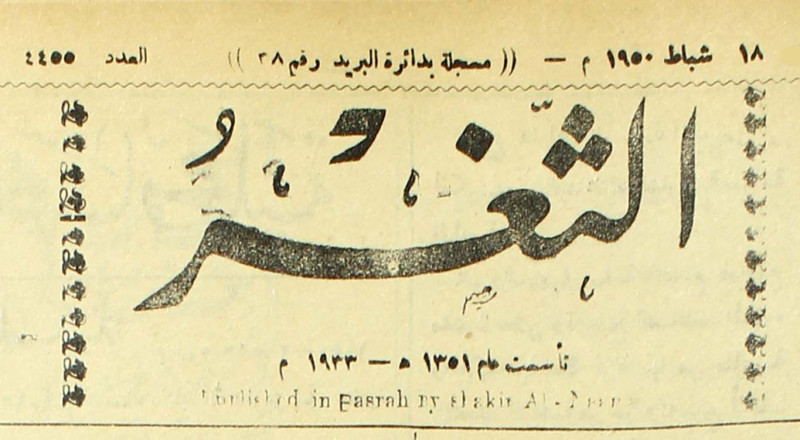 ١٨ شباط ١٩٥٠ م — (( مسجلة بدائرة البريد رقم ٣٨ )) العدد ٤٤٥٥
الثَّغْرُ
تأسست عام ١٣٥١ ه — ١٩٣٣ م
Published in Basrah by Shakir Al-